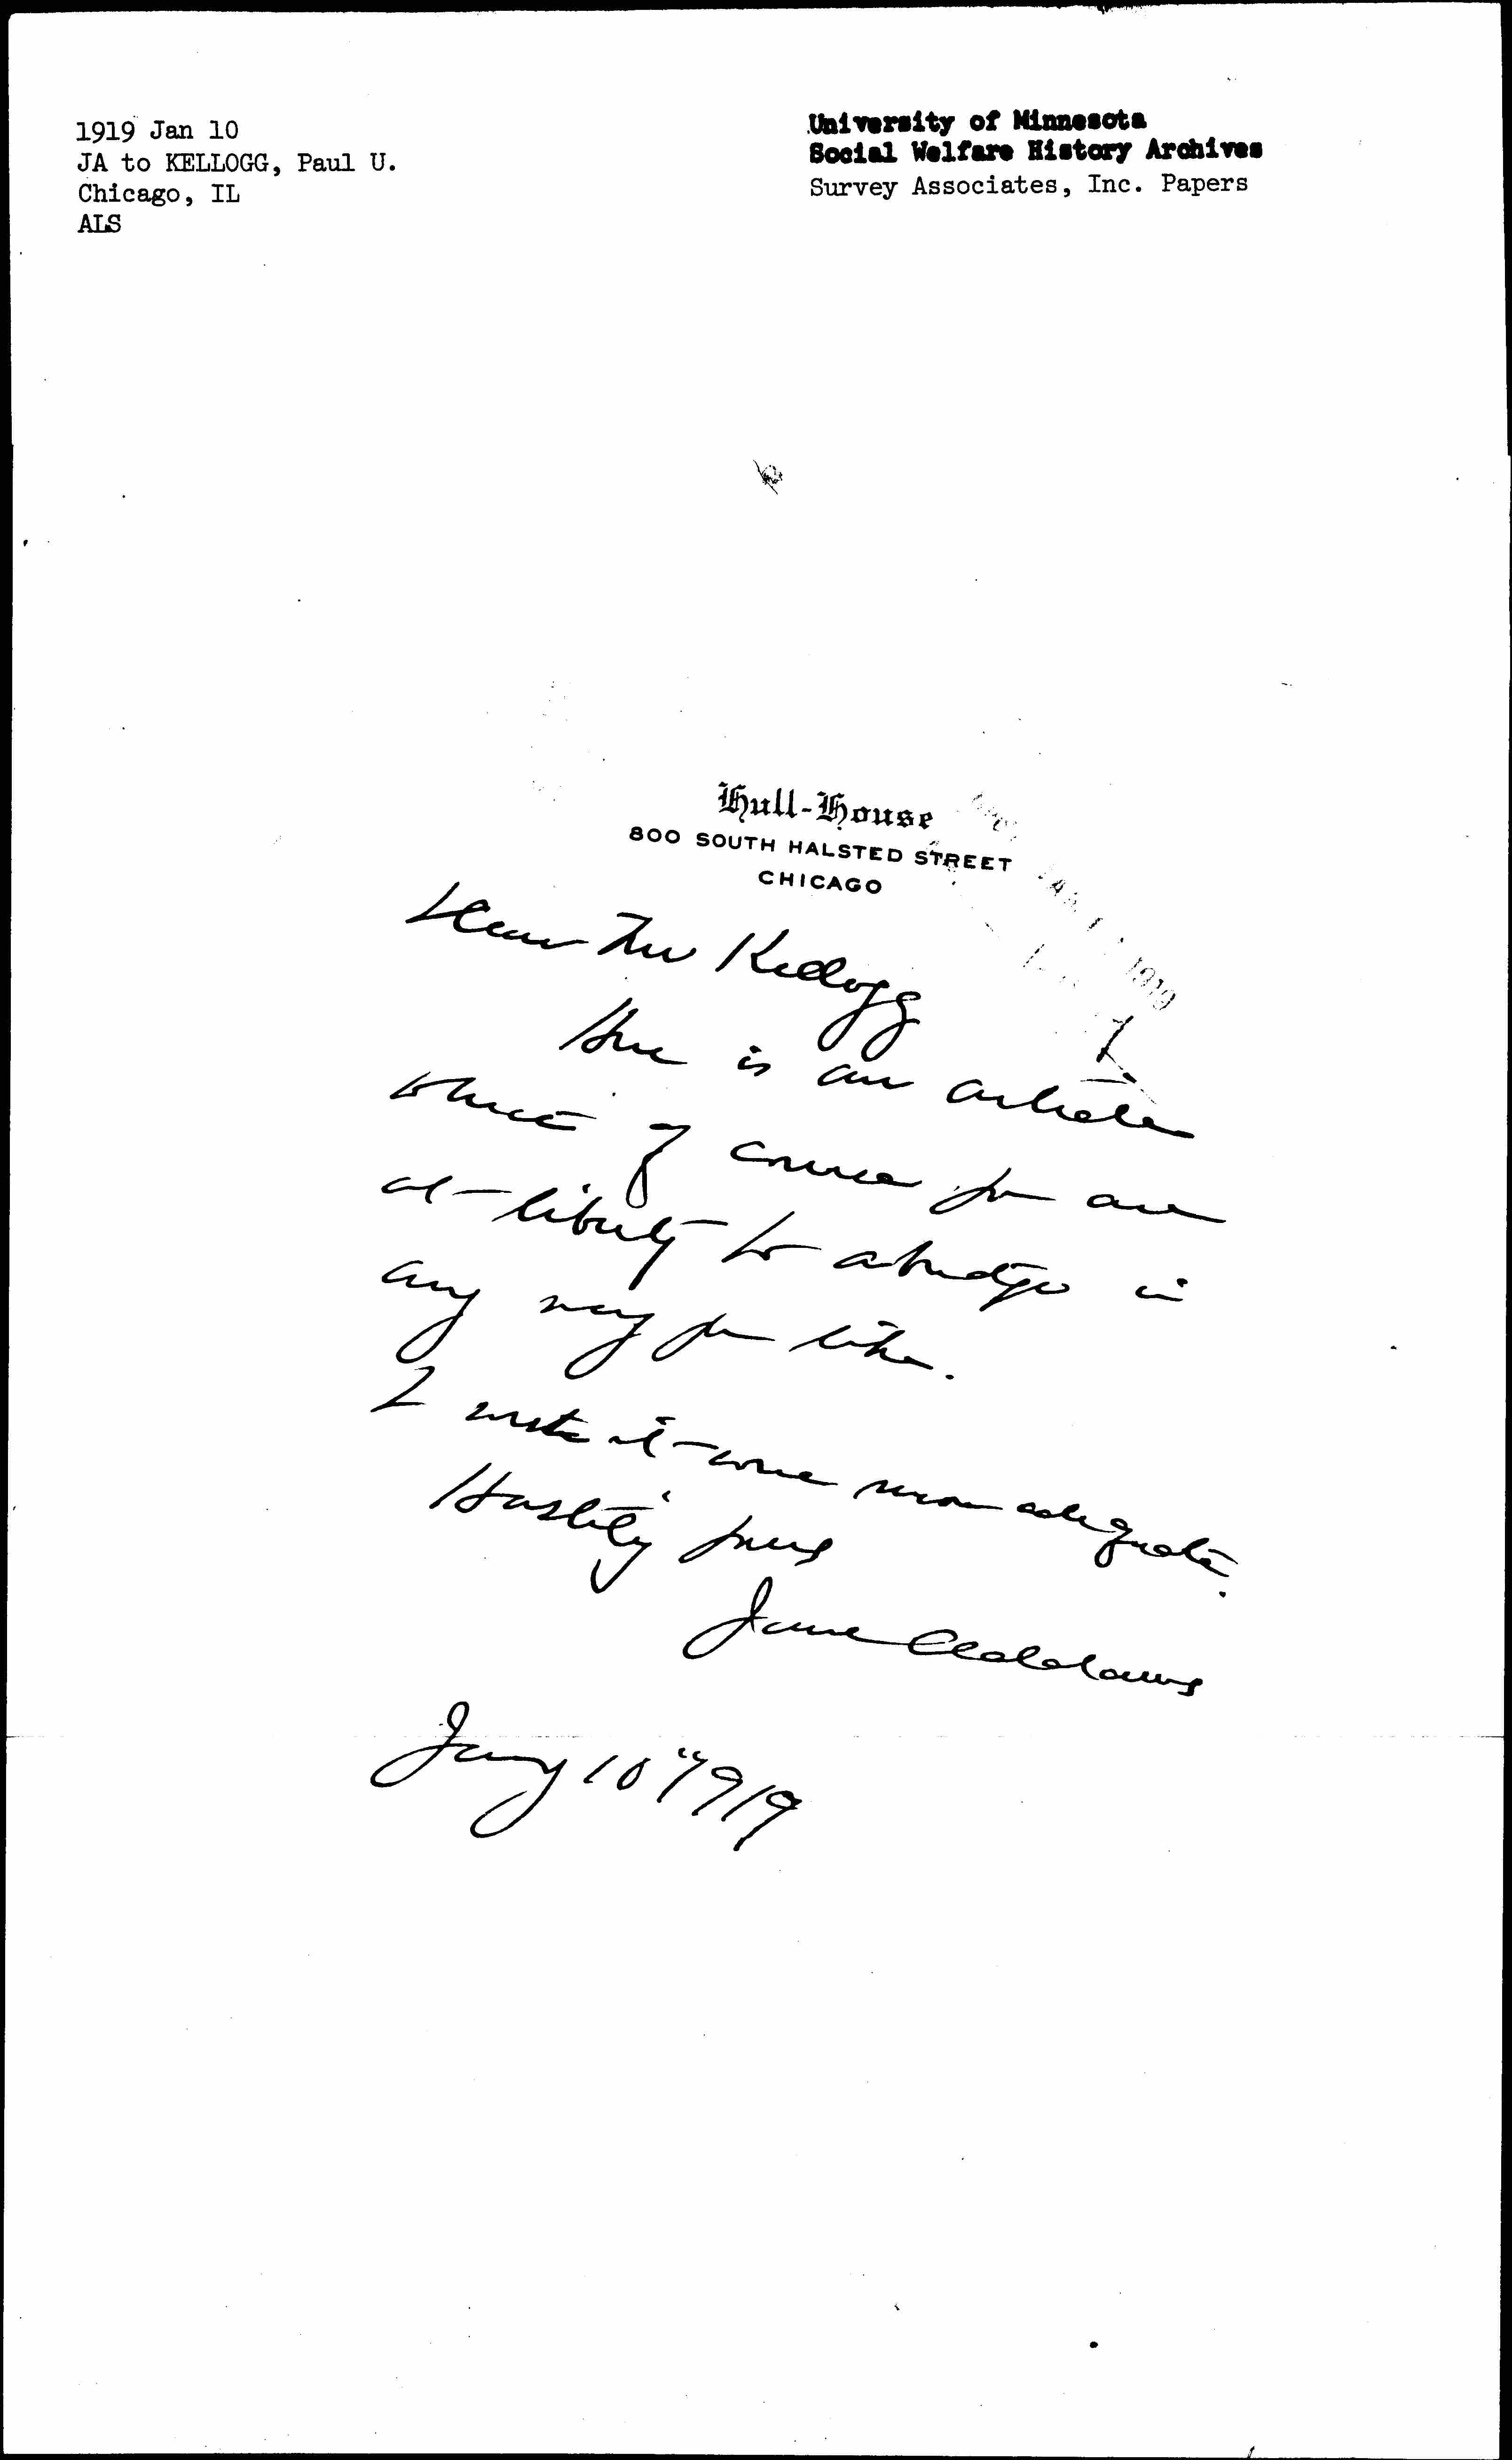 1919 Jan 10
JA to KELLOGG, Paul U.
Chicago, IL
ALS
University of Minnesota
Social Welfare History Archives
Survey Associates, Inc. Papers
Hull-House
800 SOUTH HALSTED STREET
CHICAGO
1919
Dear Mr Kellogg
Here is an article
which of course you are
at liberty to abridge in
any way you like.
I wish it were more adequate.
Hastily yours
Jane Addams
Jany 10" 1919